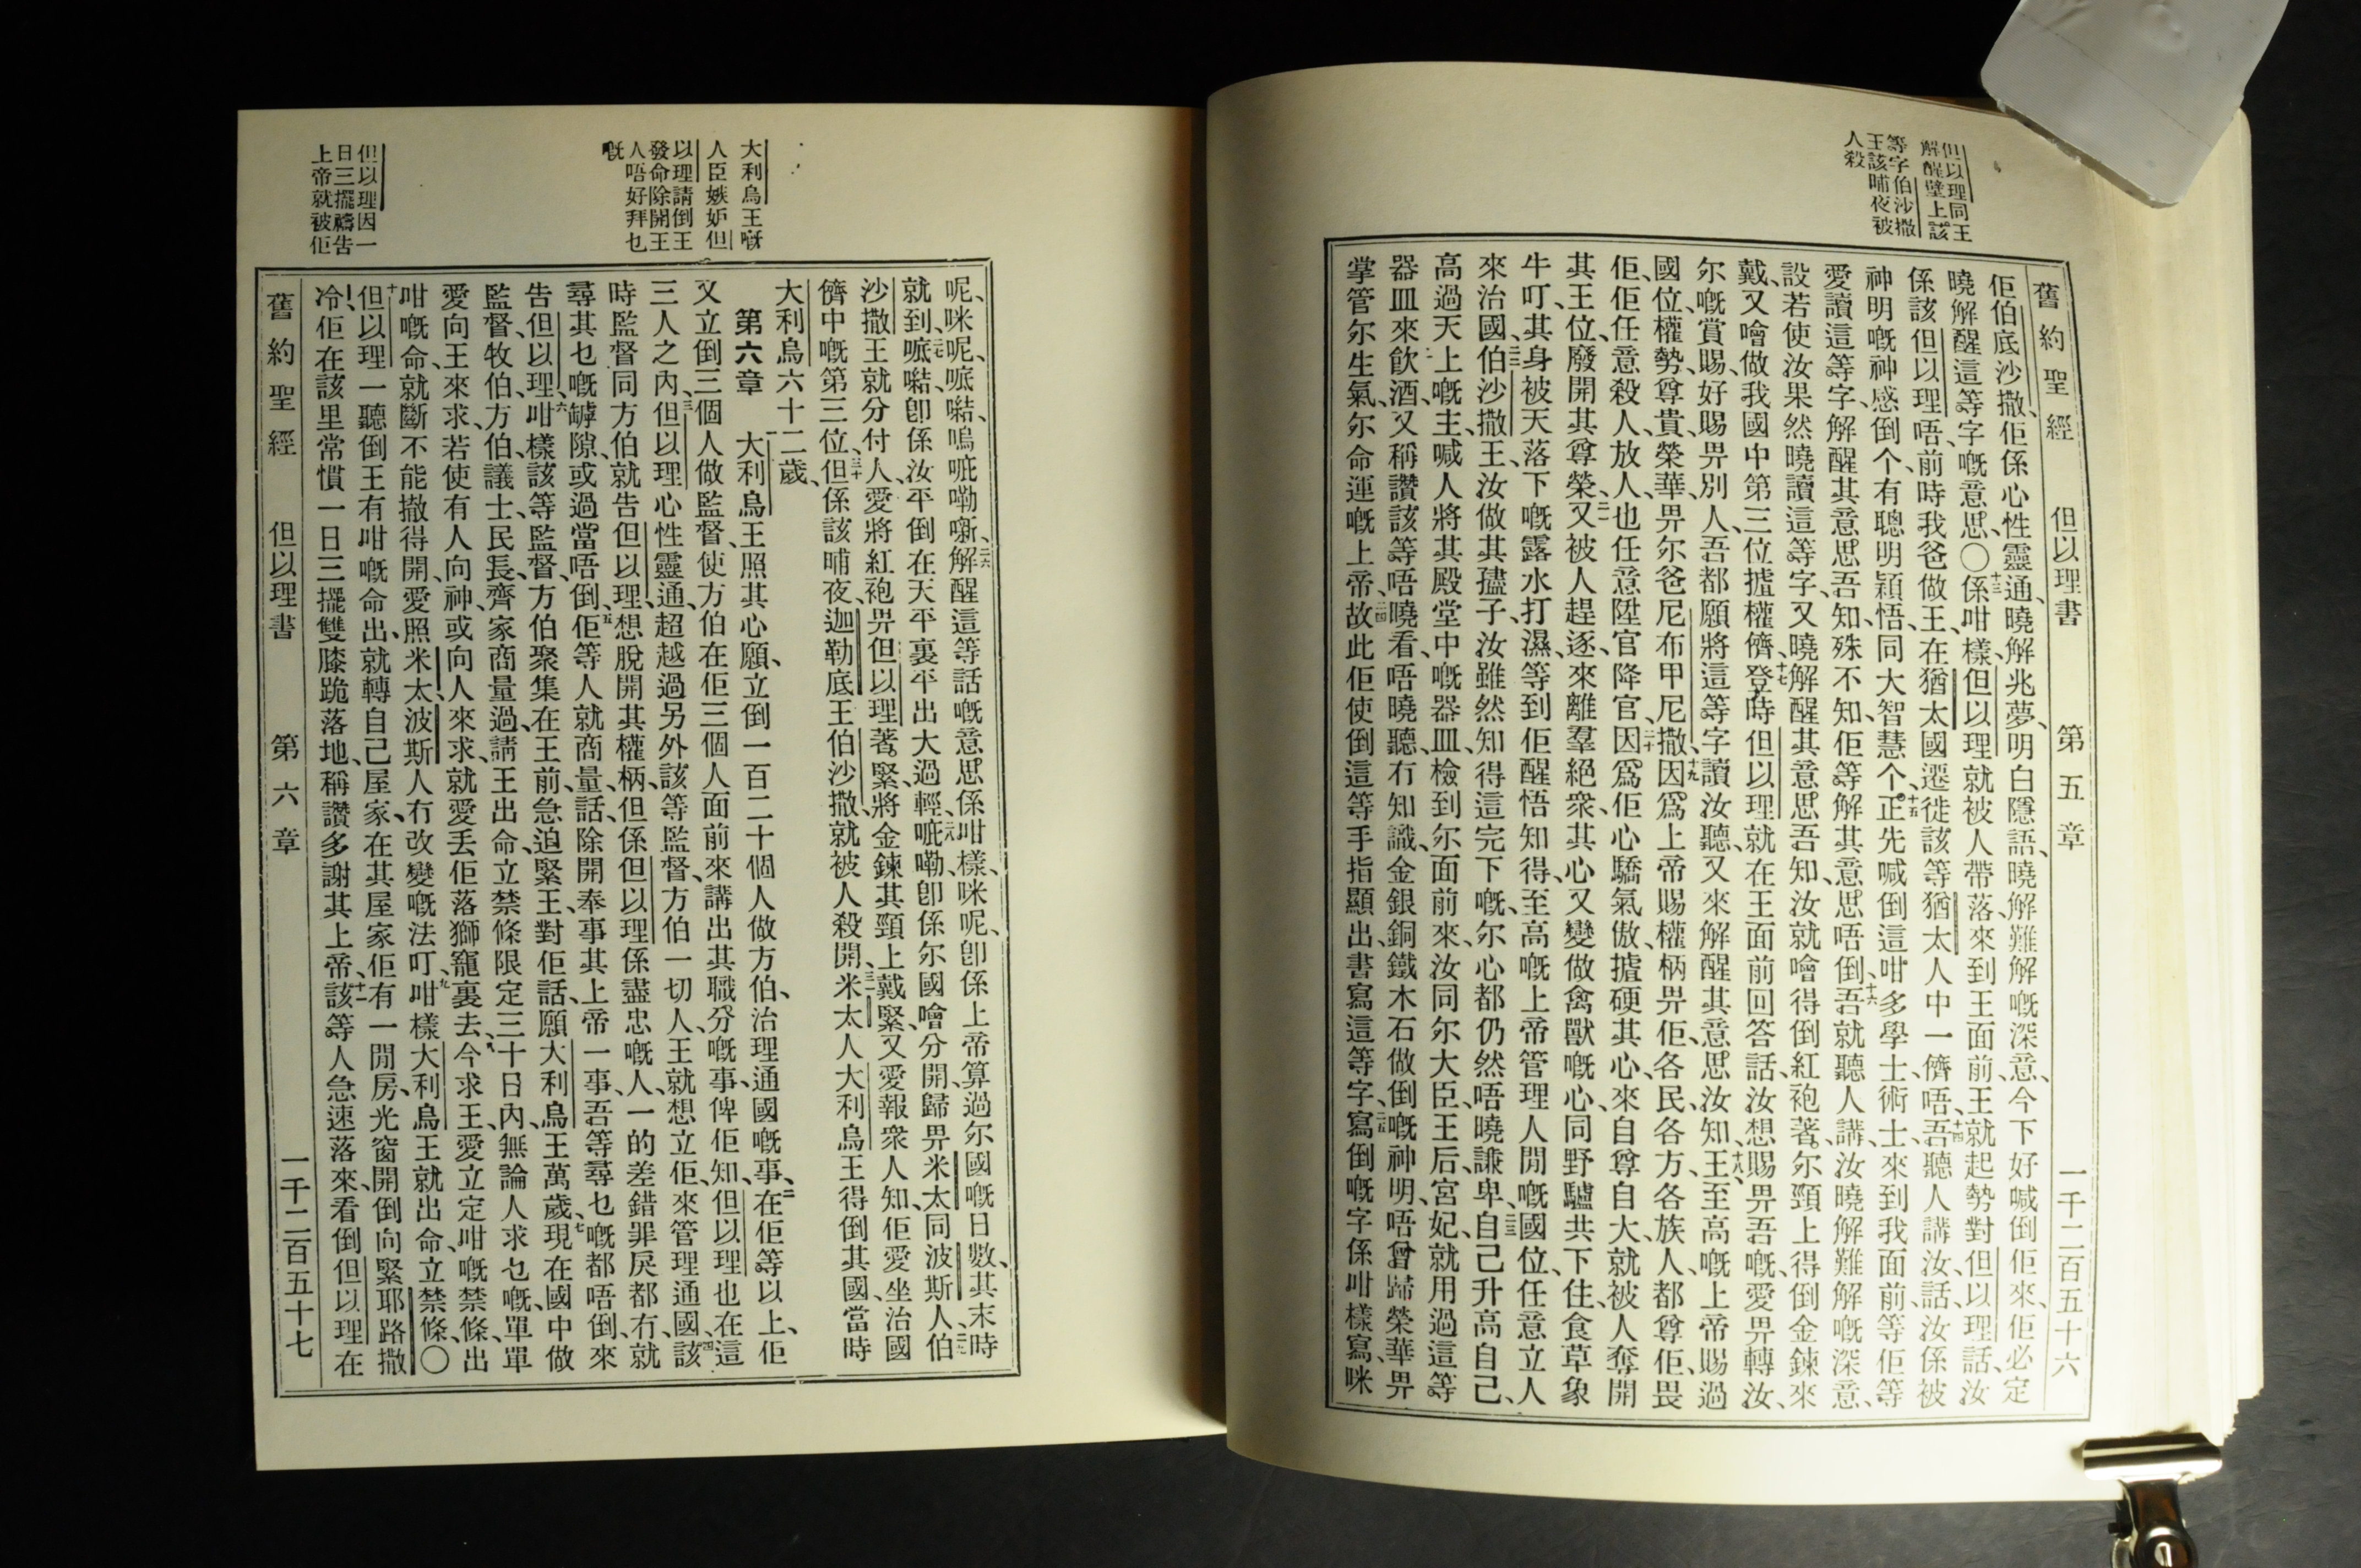 舊約聖經 但以理書 第五章 一千二百五十六
但以理同王
解醒壁上該
等字伯沙撒
王該晡夜被
人殺
佢伯底沙撒、佢係心性靈通、曉解兆夢、明白隱語、曉解難解嘅深意、今下好喊倒佢來、佢必定
曉解醒這等字嘅意思、〇十三係咁樣、但以理就被人帶落來到王面前、王就起勢對但以理話、汝
係該但以理唔、前時我爸做王、在猶太國遷徙該等猶太人中一儕唔、十四吾聽人講汝、話汝係被
神明嘅神感倒个、有聰明穎悟、同大智慧个、十五正先喊倒這咁多學士術士、來到我面前、等佢等
愛讀這等字、解醒其意思、吾知、殊不知、佢等解其意思唔倒、十六吾就聽人講、汝曉解難解嘅深意、
設若使汝果然曉讀這等字、又曉解醒其意思、吾知、汝就噲得倒紅袍著、尔頸上得倒金鍊來
戴、又噲做我國中第三位攄權儕、十七登時但以理就在王面前回答話、汝想賜畀吾嘅、愛畀轉汝、
尔嘅賞賜、好賜畀別人、吾都願將這等字讀汝聽、又來解醒其意思汝知、十八王、至高嘅上帝賜過
國位、權勢、尊貴、榮華、畀尔爸尼布甲尼撒、十九因爲上帝賜權柄畀佢、各民、各方、各族人、都尊佢、畏
佢、佢任意殺人、放人、也任意陞官、降官、二十因爲佢心驕氣傲、攄硬其心、來自尊自大、就被人奪開
其王位、廢開其尊榮、二一又被人趕逐、來離羣絕衆、其心又變做禽獸嘅心、同野驢共下住、食草象
牛、叮其身被天落下嘅露水打濕、等到佢醒悟知得、至高嘅上帝、管理人間嘅國位、任意立人
來治國、二二伯沙撒王、汝做其孻子、汝雖然知得這完下嘅、尔心都仍然唔曉謙卑、二三自己升高自己、
高過天上嘅主、喊人將其殿堂中嘅器皿、檢到尔面前來、汝同尔大臣、王后、宮妃、就用過這等
器皿來飲酒、又稱讚該等唔曉看、唔曉聽、冇知識、金銀銅鐵木石做倒嘅神明、唔曾歸榮華畀
掌管尔生氣、尔命運嘅上帝、二四故此佢使倒這等手指顯出、書寫這等字、二五寫倒嘅字係咁樣寫、咪
大利烏王嘅
人臣嫉妒但
以理請倒王
發命除開王
人唔好拜乜
嘅
但以理因一
日三擺禱告
上帝就被佢
呢、咪呢、嚦㗖、嗚嗁嘞𠹱、二六解醒這等話嘅意思係咁樣、咪呢、卽係上帝算過尔國嘅日數、其末時
就到、二七嚦㗖、卽係汝平倒在天平裏、平出大過輕、二八嗁嘞、卽係尔國噲分開、歸畀米太同波斯人、二九伯
沙撒王就分付人、愛將紅袍畀但以理著緊、將金鍊其頸上戴緊、又愛報衆人知、佢愛坐治國
儕中嘅第三位、三十但係該晡夜、迦勒底王伯沙撒、就被人殺開、三一米太人大利烏王得倒其國、當時
大利烏六十二歲、
第六章 一大利烏王照其心願、立倒一百二十個人做方伯、治理通國嘅事、二在佢等以上、佢
又立倒三個人做監督、使方伯在佢三個人面前來講出其職分嘅事、俾佢知、但以理也在這
三人之內、三但以理心性靈通、超越過另外該等監督、方伯一切人、王就想立佢、來管理通國、四該
時監督同方伯就告但以理、想脫開其權柄、但係但以理係盡忠嘅人、一的差錯罪戾都冇、就
尋其乜嘅罅隙、或過當唔倒、五佢等人就商量話、除開奉事其上帝一事、吾等尋乜嘅都唔倒、來
告但以理、六咁樣該等監督、方伯聚集在王前、急追緊王、對佢話、願大利烏王萬歲、七現在國中做
監督、牧伯、方伯、議士、民長、齊家商量過、請王出命、立禁條、限定三十日內、無論人求乜嘅、單單
愛向王來求、若使有人向神、或向人來求、就愛丢佢落獅竉裏去、八今求王、愛立定咁嘅禁條、出
咁嘅命、就斷不能撤得開、愛照米太、波斯人冇改變嘅法叮、九咁樣大利烏王就出命、立禁條、〇
十但以理一聽倒王有咁嘅命出、就轉自己屋家、在其屋家佢有一間房、光窗開倒向緊耶路撒
冷、佢在該里常慣一日三擺雙膝跪落地、稱讚多謝其上帝、十一該等人急速落來、看倒但以理在
舊約聖經 但以理書 第六章 一千二百五十七